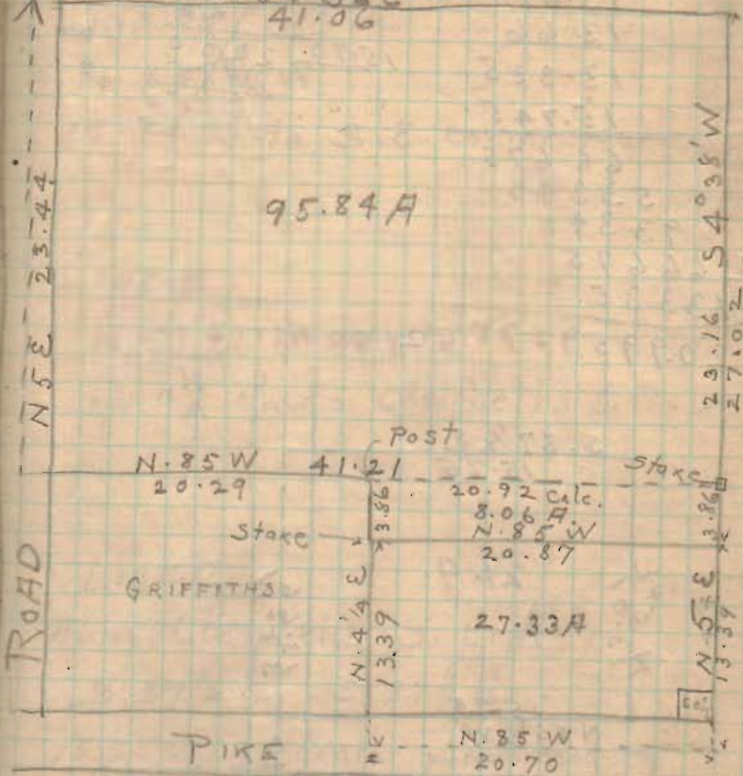 41.06
95.84 A
N 5 E 23.44
S 4° 38' W
23.16
27.02
Post
N. 85 W 41.21
20.29
Stake
20.92 Calc.
8.06 A.
3.86
3.86
N. 85 W
20.87
Stake
GRIFFITHS
N. 4 1/4 E
13.39
27.33 A
N. 5 E
13.39
ROAD
PIKE
N. 85 W
20.70